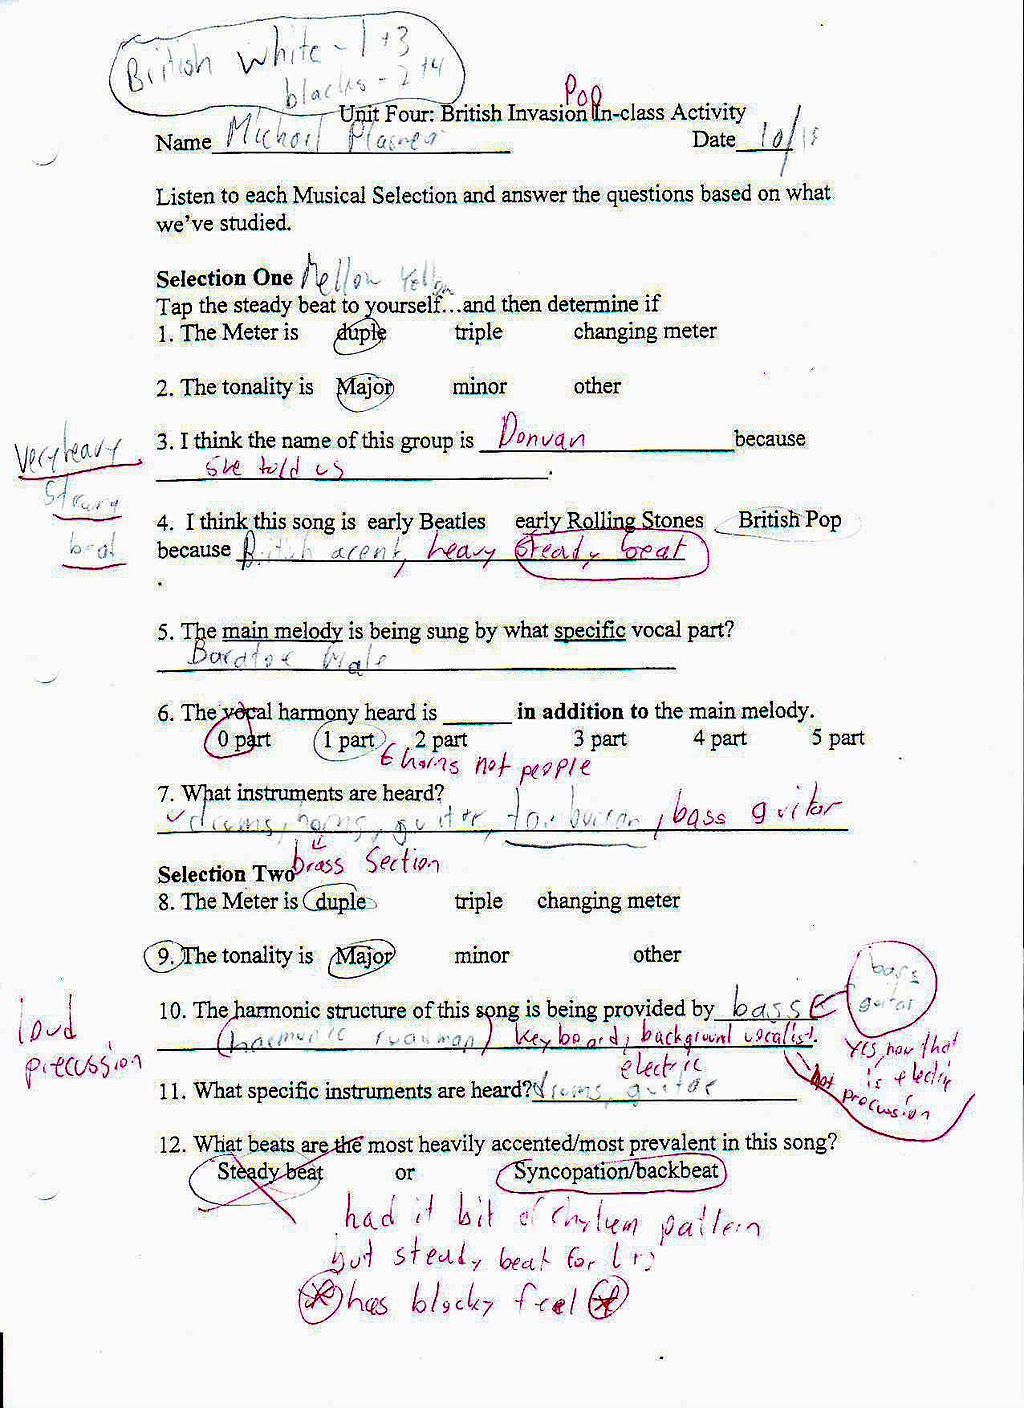 British white - 1 +3
blacks - 2 +4
Pop
Unit Four: British Invasion In-class Activity
Name Date 10/15
Listen to each Musical Selection and answer the questions based on what
we've studied.
Selection One Mellow Yellow
Tap the steady beat to yourself...and then determine if
1. The Meter is duple triple changing meter
2. The tonality is Major minor other
3. I think the name of this group is Donvan because
she told us .
very heavy
strong
beat
4. I think this song is early Beatles early Rolling Stones British Pop
because British acent, heavy steady beat
.
5. The main melody is being sung by what specific vocal part?
Baratoe Male
6. The vocal harmony heard is ______ in addition to the main melody.
0 part 1 part 2 part 3 part 4 part 5 part
horns not people
7. What instruments are heard?
drums, horns, guitar, , bass guitar
brass Section
Selection Two
8. The Meter is duple triple changing meter
9. The tonality is Major minor other
bass
guitar
10. The harmonic structure of this song is being provided by bass
(harmonic ) keyboard, background vocalist.
loud
precussion
Yes, now that
is electric
not precussion
electric
11. What specific instruments are heard? drums, guitar
12. What beats are the most heavily accented/most prevalent in this song?
Steady beat or Syncopation/backbeat
had it bit of pattern
but steady beat for
has blocky feel